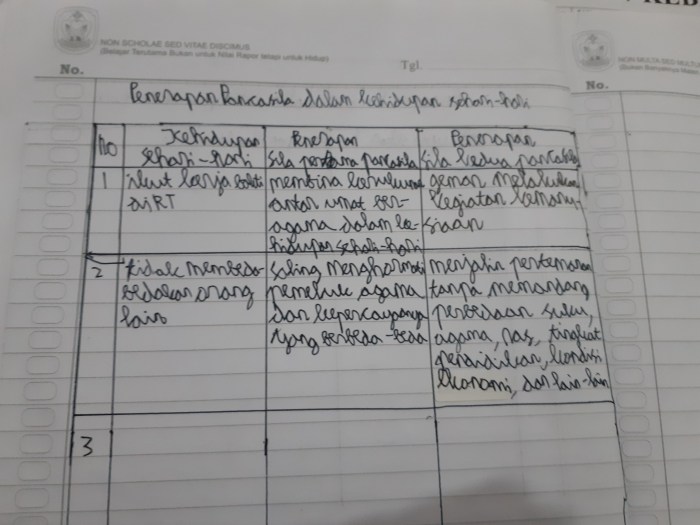 NON SCHOLAE SED VITAE DISCIMUS
(Belajar Terutama Bukan untuk Nilai Rapor tetapi untuk Hidup)
No.
Tgl.
No.
Penerapan Pancasila dalam kehidupan sehari-hari
No
Kehidupan
sehari-hari
Penerapan
sila pertama pancasila
Penerapan
sila kedua pancasila
1
ikut kerja bakti
di RT
membina kerukunan
antar umat ber-
agama dalam ke-
hidupan sehari-hari
gemar melakukan
kegiatan kemanu-
siaan
2
tidak membeda-
bedakan orang
lain
saling menghormati
pemeluk agama
dan kepercayaan
yang berbeda-beda
menjalin pertemanan
tanpa memandang
perbedaan suku,
agama, ras, tingkat
pendidikan, kondisi
ekonomi, dan lain-lain
3